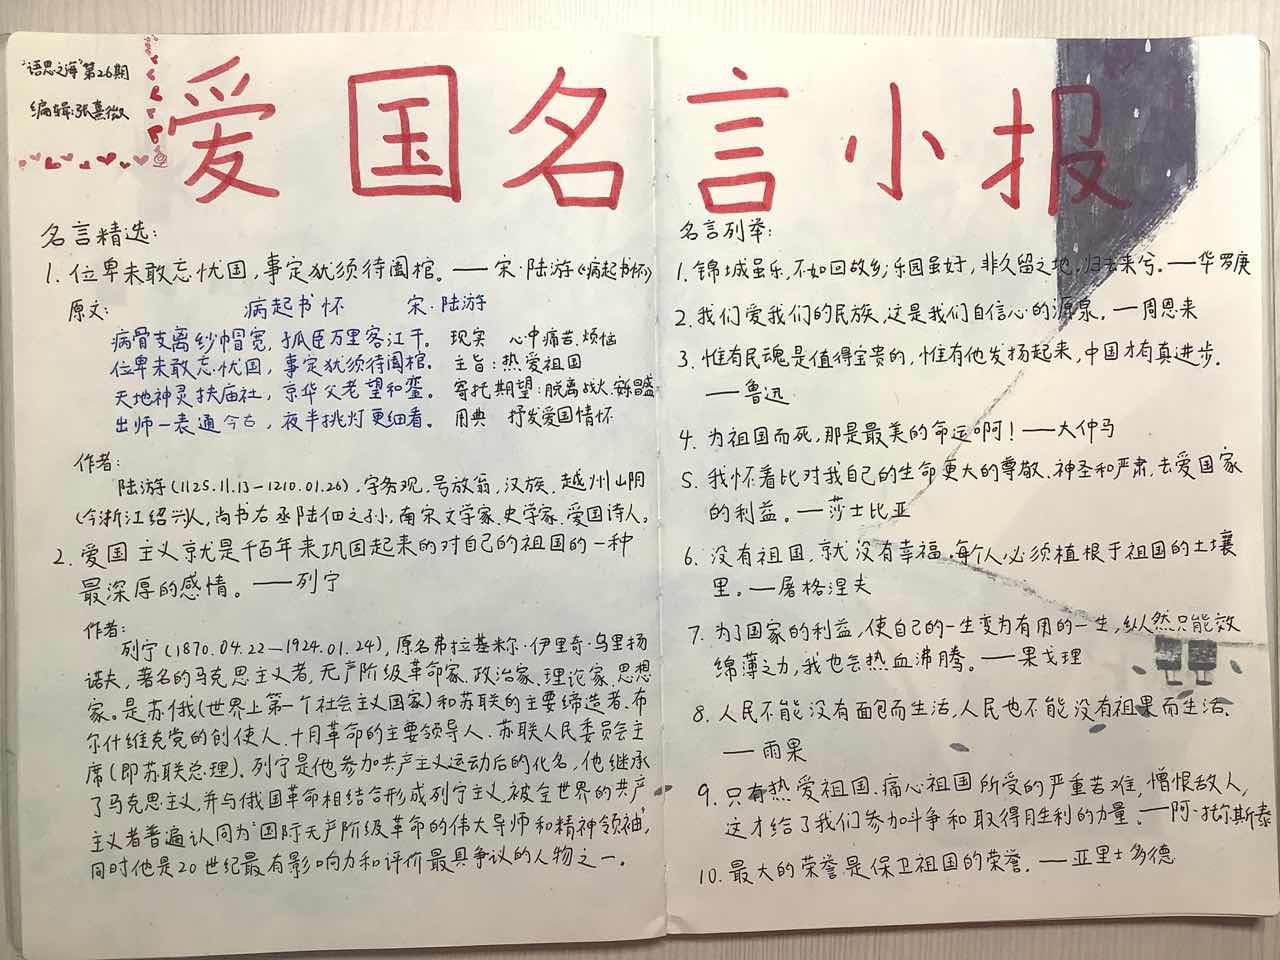 "语思之海"第26期
编辑:张熹微
爱国名言小报
名言精选:
1. 位卑未敢忘忧国,事定犹须待阖棺。——宋·陆游《病起书怀》
原文: 病起书怀 宋·陆游
病骨支离纱帽宽,孤臣万里客江干。 现实 心中痛苦.烦恼
位卑未敢忘忧国,事定犹须待阖棺。 主旨:热爱祖国
天地神灵扶庙社,京华父老望和銮。 寄托期望:脱离战火.安乐昌盛
出师一表通今古,夜半挑灯更细看。 用典 抒发爱国情怀
作者:
陆游(1125.11.13—1210.01.26),字务观,号放翁,汉族,越州山阴
(今浙江绍兴)人,尚书右丞陆佃之孙,南宋文学家.史学家.爱国诗人。
2. 爱国主义就是千百年来巩固起来的对自己的祖国的一种
最深厚的感情。——列宁
作者:
列宁(1870.04.22—1924.01.24),原名弗拉基米尔·伊里奇·乌里扬
诺夫,著名的马克思主义者,无产阶级革命家.政治家.理论家.思想
家。是苏俄(世界上第一个社会主义国家)和苏联的主要缔造者.布
尔什维克党的创使人.十月革命的主要领导人.苏联人民委员会主
席(即苏联总理)。列宁是他参加共产主义运动后的化名,他继承
了马克思主义,并与俄国革命相结合形成列宁主义,被全世界的共产
主义者普遍认同为"国际无产阶级革命的伟大导师和精神领袖",
同时他是20世纪最有影响力和评价最具争议的人物之一。
名言列举:
1. 锦城虽乐,不如回故乡;乐园虽好,非久留之地,归去来兮。——华罗庚
2. 我们爱我们的民族,这是我们自信心的源泉。——周恩来
3. 惟有民魂是值得宝贵的,惟有他发扬起来,中国才有真进步.
——鲁迅
4. 为祖国而死,那是最美的命运啊!——大仲马
5. 我怀着比对我自己的生命更大的尊敬.神圣和严肃,去爱国家
的利益。——莎士比亚
6. 没有祖国,就没有幸福.每个人必须植根于祖国的土壤
里。——屠格涅夫
7. 为了国家的利益,使自己的一生变为有用的一生,纵然只能效
绵薄之力,我也会热血沸腾。——果戈理
8. 人民不能没有面包而生活,人民也不能没有祖果而生活.
——雨果
9. 只有热爱祖国.痛心祖国所受的严重苦难,憎恨敌人,
这才给了我们参加斗争和取得胜利的力量。——阿·托尔斯泰
10. 最大的荣誉是保卫祖国的荣誉。——亚里士多德